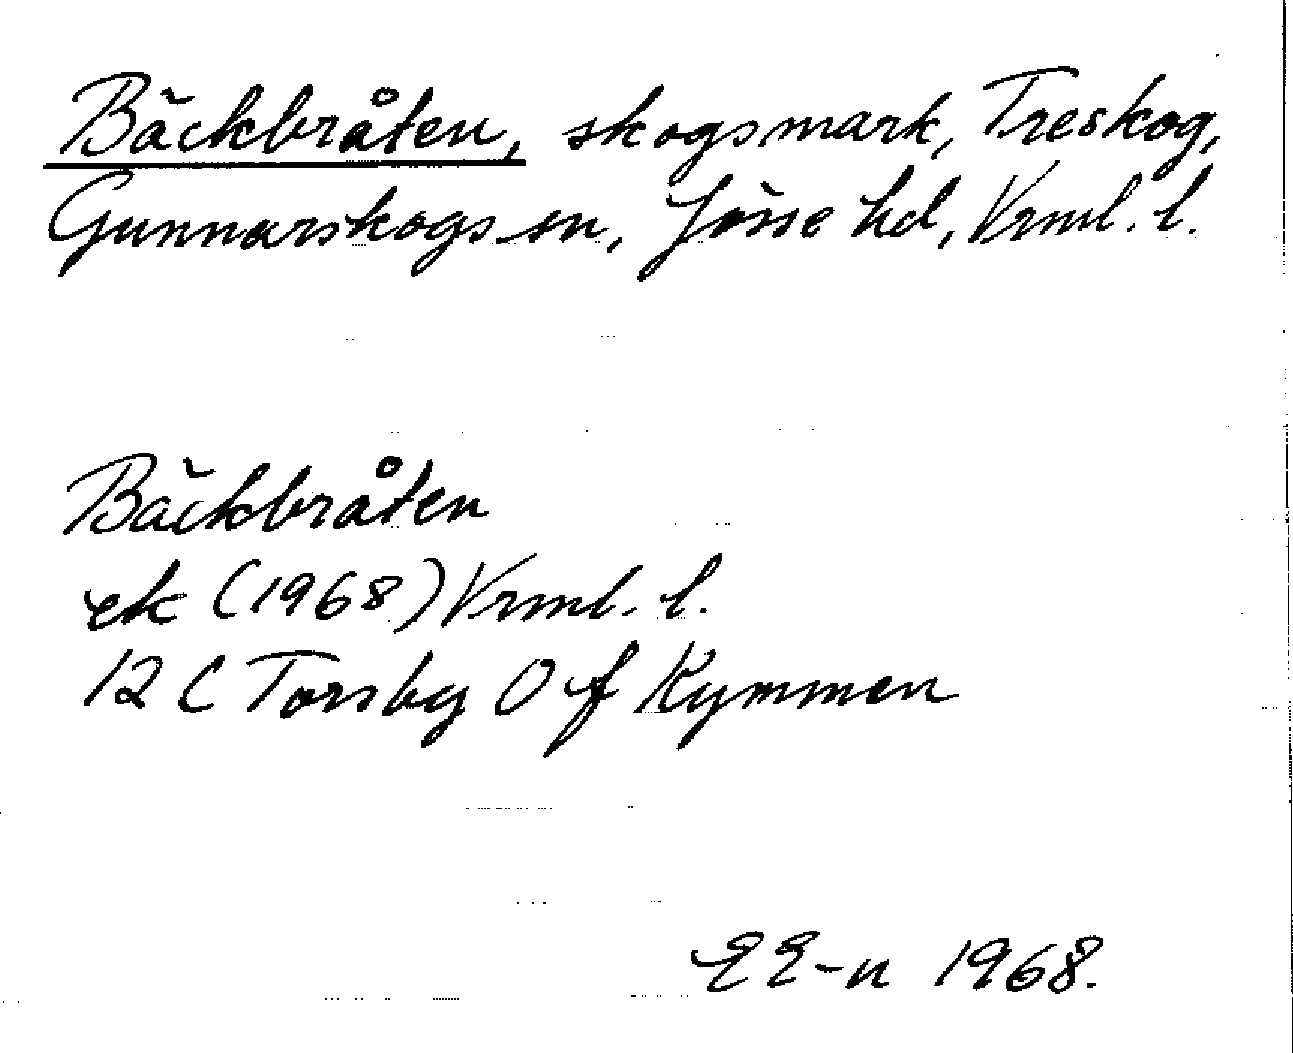 Bäckbråten, skogsmark, Treskog,
Gunnarskogs sn, Jösse hd, Vrml. l.
Bäckbråten
ek (1968) Vrml. l.
12 C Torsby 0 f Kymmen
EE-n 1968.